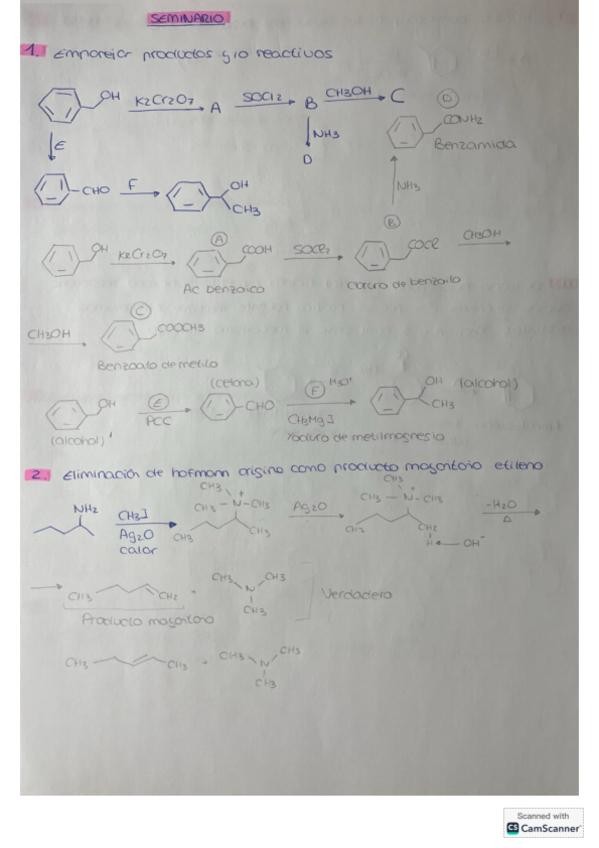 SEMINARIO
1. Emparejar productos y/o reactivos
OH K2Cr2O7 A SOCl2 B CH3OH C
E NH3 D CONH2
D Benzamida
CHO F OH
CH3 NH3
OH K2Cr2O7 A COOH SOCl2 B COCl CH3OH
Ac benzoico Cloruro de benzoilo
CH3OH C COOCH3
Benzoato de metilo
(cetona) H3O+
OH E CHO F OH (alcohol)
PCC CH3MgI CH3
(alcohol) Yoduro de metilmagnesio
2. Eliminación de hofmann origina como producto mayoritario etileno
NH2 CH3I CH3 CH3
CH3 - N+ - CH3 Ag2O CH3 - N+ - CH3 -H2O
Ag2O CH3 CH3 CH3 CH2 Δ
calor H OH-
CH3 CH2 + CH3 N CH3 CH3 Verdadero
Producto mayoritario
CH3 CH3 + CH3 N CH3
CH3
Scanned with
CS CamScanner